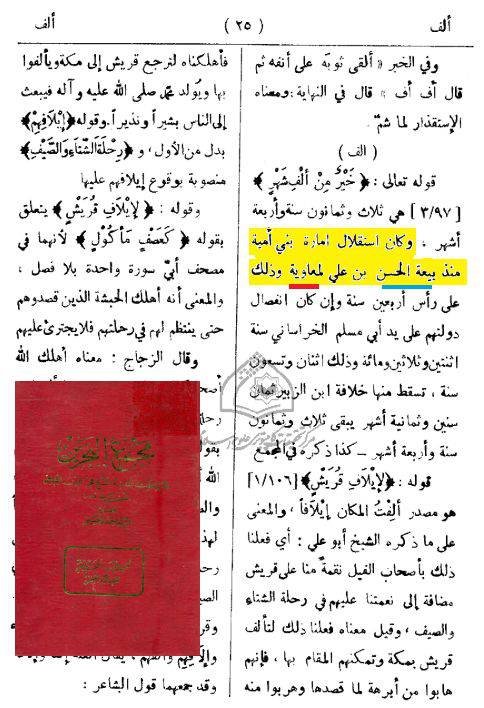 ألف
( ٢٥ )
ألف
وفي الخبر « ألقى ثوبَه على أنفه ثم
قال أف أف » قال في النهاية : ومعناه
الإستقذار لما شم .
( الف )
قوله تعالى : ﴿ خَيْرٌ مِنْ أَلْفِ شَهْرٍ ﴾
[ ٣/٩٧ ] هي ثلاث وثمانون سنة وأربعة
أشهر ، وكان استقلال امارة بني أمية
منذ بيعة الحسن بن علي لمعاوية وذلك
على رأس أربعين سنة وإن كان انفصال
دولتهم على يد أبي مسلم الخراساني سنة
اثنتين وثلاثين ومائة وذلك اثنان وتسعون
سنة ، تسقط منها خلافة ابن الزبير ثمان
سنين وثمانية أشهر يبقى ثلاث وثمانون
سنة وأربعة أشهر ــ كذا ذكره في المجمع
قوله : ﴿ لِإِيلَافِ قُرَيْشٍ ﴾ [ ١/١٠٦ ]
هو مصدر ألِفْتُ المكان إيْلَافاً ، والمعنى
على ما ذكره الشيخ أبو علي : أي فعلنا
ذلك بأصحاب الفيل نقمةً منا على قريش
مضافة إلى نعمتنا عليهم في رحلة الشتاء
والصيف ، وقيل معناه فعلنا ذلك لتألف
قريش بمكة وتمكنهم المقام بها ، فإنهم
هابوا من أبرهة لما قصدها وهربوا منه
فأهلكناه لترجع قريش إلى مكة ويألفوا
بها ويُولد محمد صلى الله عليه وآله فيبعث
إلى الناس بشيراً ونذيراً . وقوله ﴿ إِيْلَافِهِمْ ﴾
بدل من الأول ، و ﴿ رِحْلَةَ الشِّتَاءِ وَالصَّيْفِ ﴾
منصوبة بوقوع إيلافهم عليها
وقوله : ﴿ لِإِيلَافِ قُرَيْشٍ ﴾ يتعلق
بقوله ﴿ كَعَصْفٍ مَأْكُولٍ ﴾ لأنهما في
مصحف أبيّ سورة واحدة بلا فصل ،
والمعنى أنه أهلك الحبشة الذين قصدوهم
حتى ينتظم لهم في رحلتهم فلا يجترئ عليهم
وقال الزجاج : معناه أهلك الله
وقد جمعهما قول الشاعر :
مجمع البحرين